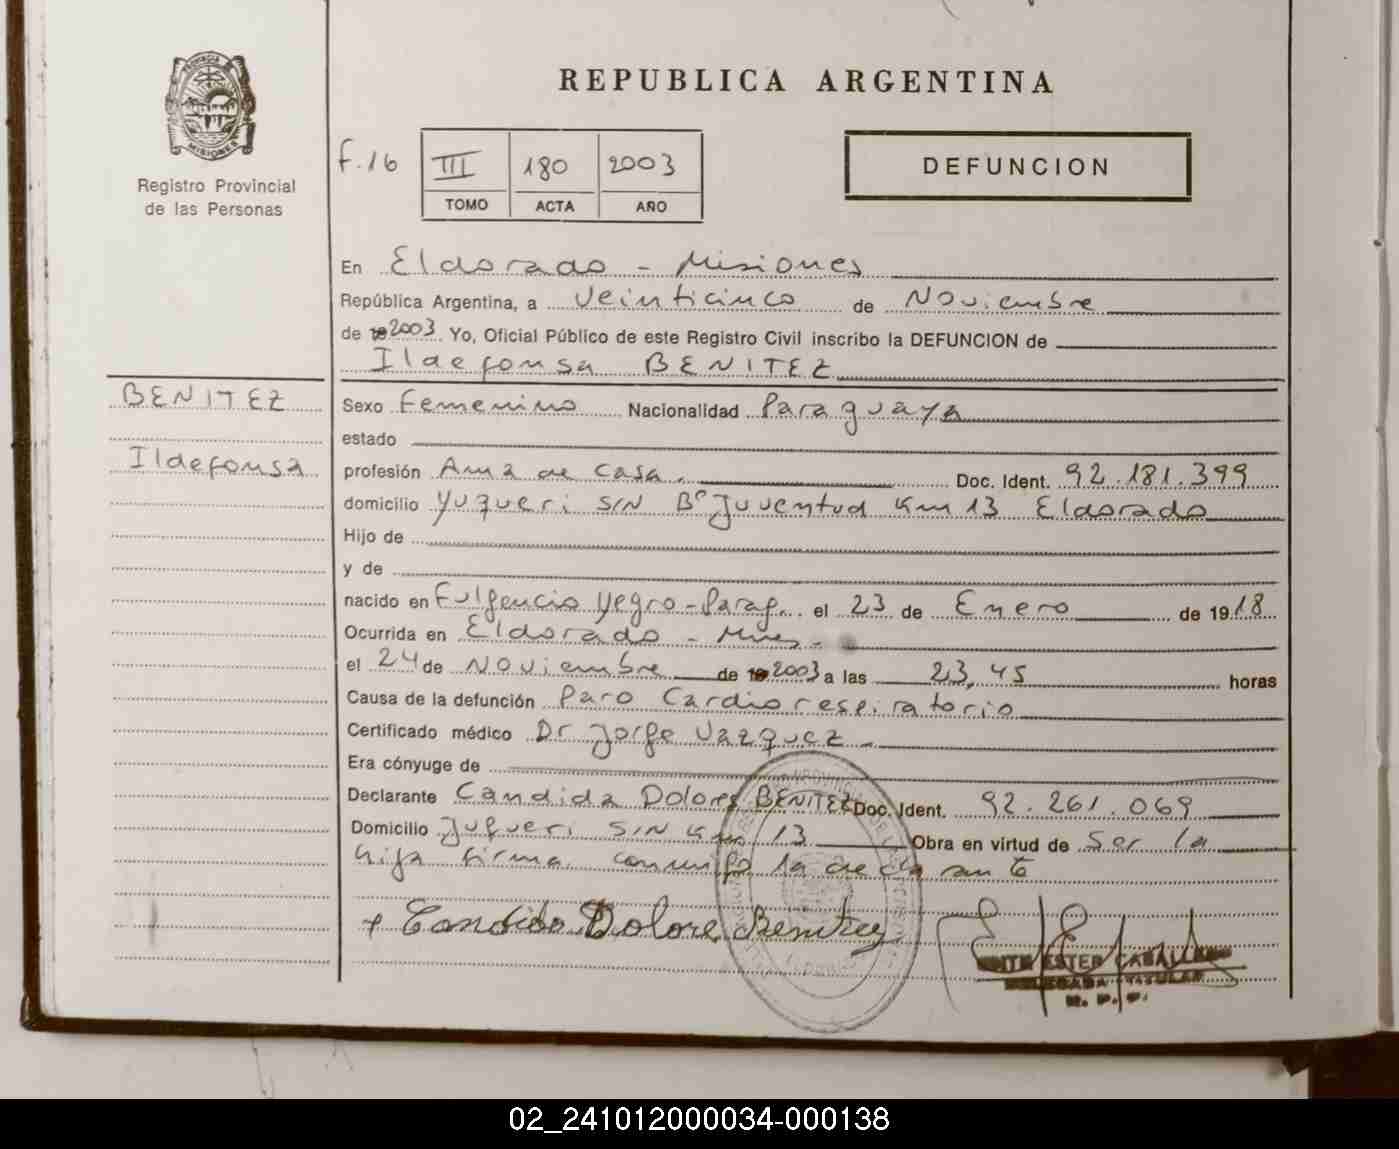 PROVINCIA
MISIONES
Registro Provincial
de las Personas
REPUBLICA ARGENTINA
F.16
III 180 2003
TOMO ACTA AÑO
DEFUNCION
En Eldorado - Misiones
República Argentina, a veinticinco de Noviembre
de 2003. Yo, Oficial Público de este Registro Civil inscribo la DEFUNCION de
Ildefonsa BENITEZ
BENITEZ
Ildefonsa
Sexo Femenino Nacionalidad Paraguaya
estado
profesión Ama de casa. Doc. Ident. 92.181.399
domicilio Yuqueri S/N B° Juventud Km 13 Eldorado
Hijo de
y de
nacido en Fulgencio Yegro-Parag. el 23 de Enero de 1918
Ocurrida en Eldorado - Mnes -
el 24 de Noviembre de 2003 a las 23,45 horas
Causa de la defunción Paro Cardiorespiratorio
Certificado médico Dr Jorge Vazquez -
Era cónyuge de
Declarante Candida Dolores BENITEZ Doc. Ident. 92.261.069
Domicilio Yuqueri S/N Km 13 Obra en virtud de ser la
hija firma conmigo la declarante
+ Candida Dolore Benitez
ESTER CABALLERO
DELEGADA TITULAR
R. P. P.
02_241012000034-000138